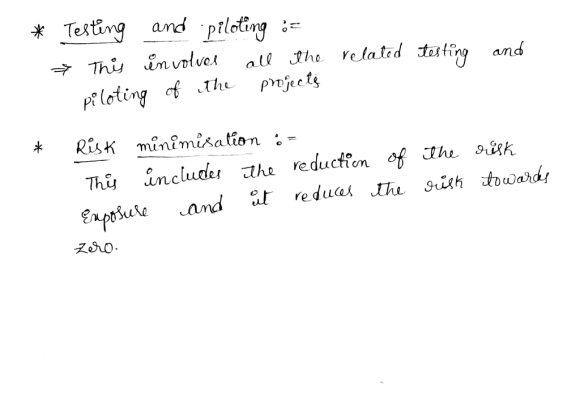 * Testing and piloting :=
⇒ This involves all the related testing and
piloting of the projects
* Risk minimisation :-
This includes the reduction of the risk
Exposure and it reduces the risk towards
zero.